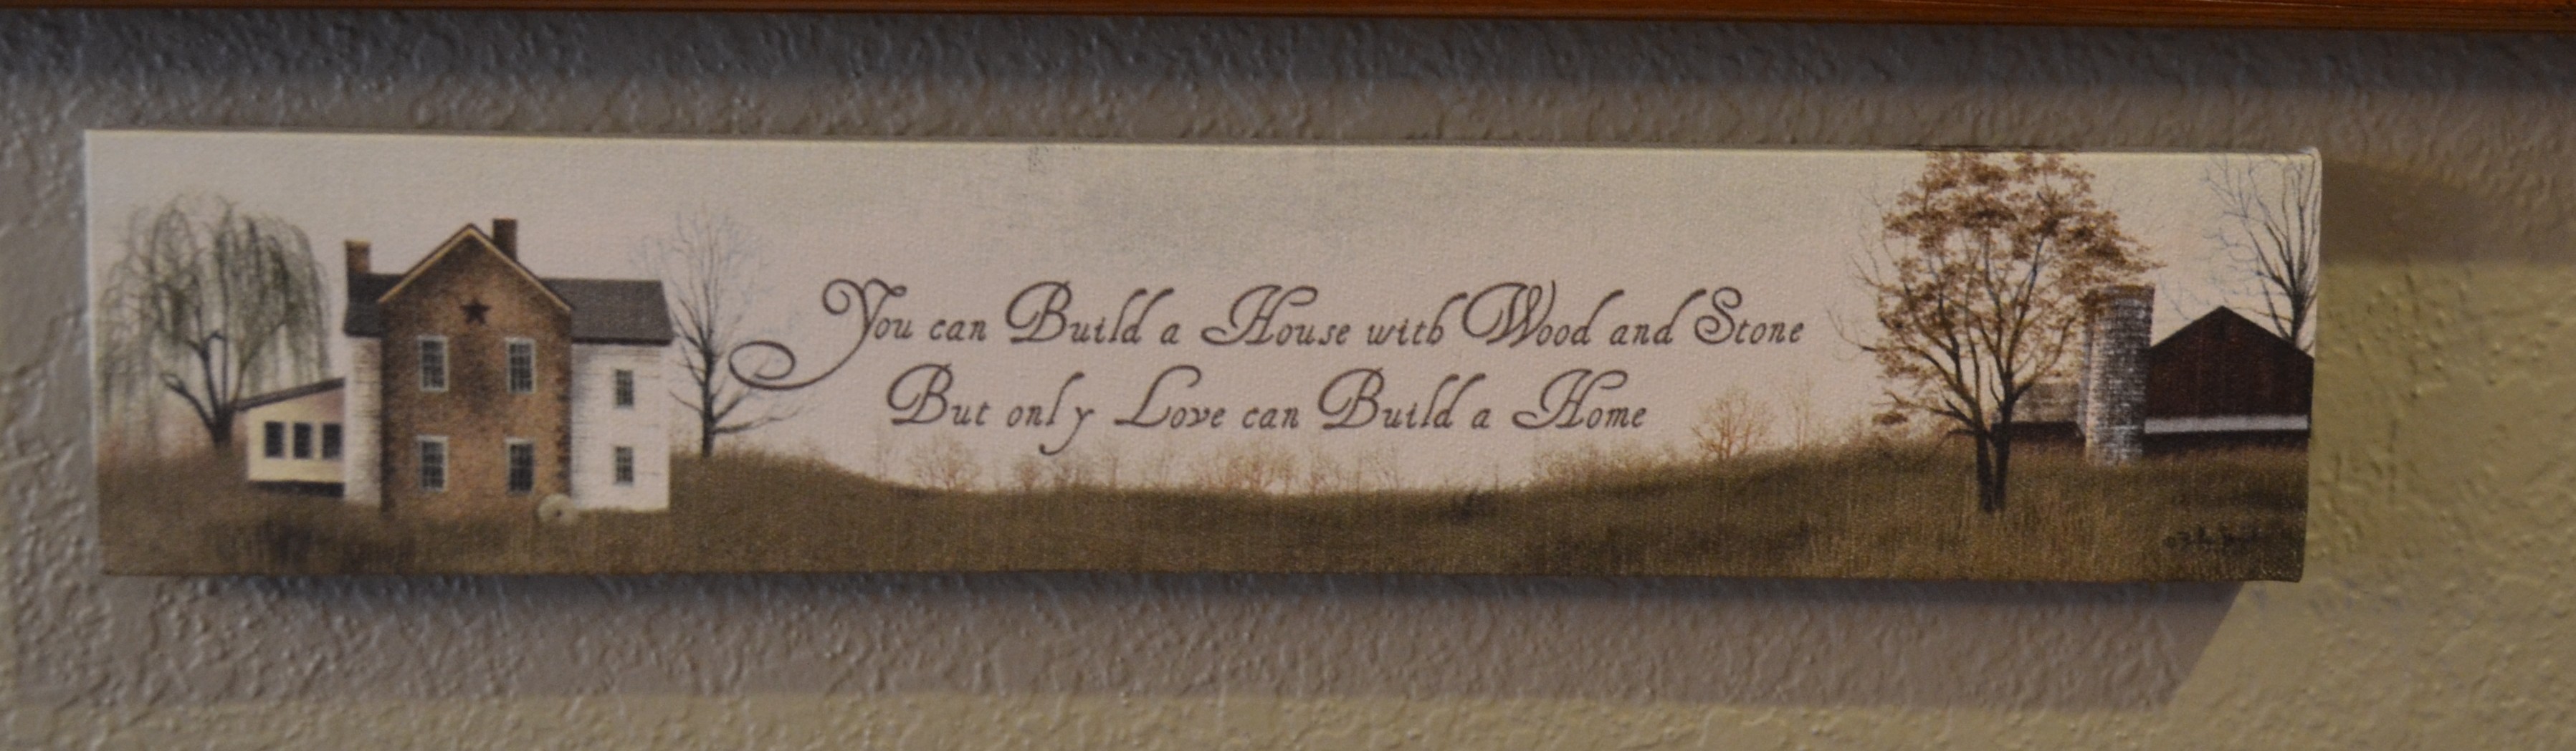 You can Build a House with Wood and Stone
But only Love can Build a Home